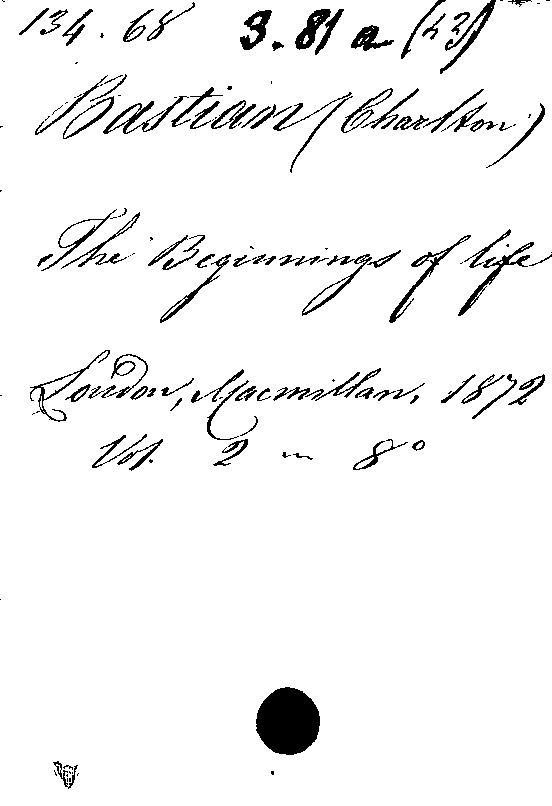 134.68 3.81 a (23)
Bastian (Charlton)
The Beginnings of life
London, Macmillan, 1872
Vol. 2 in 8°